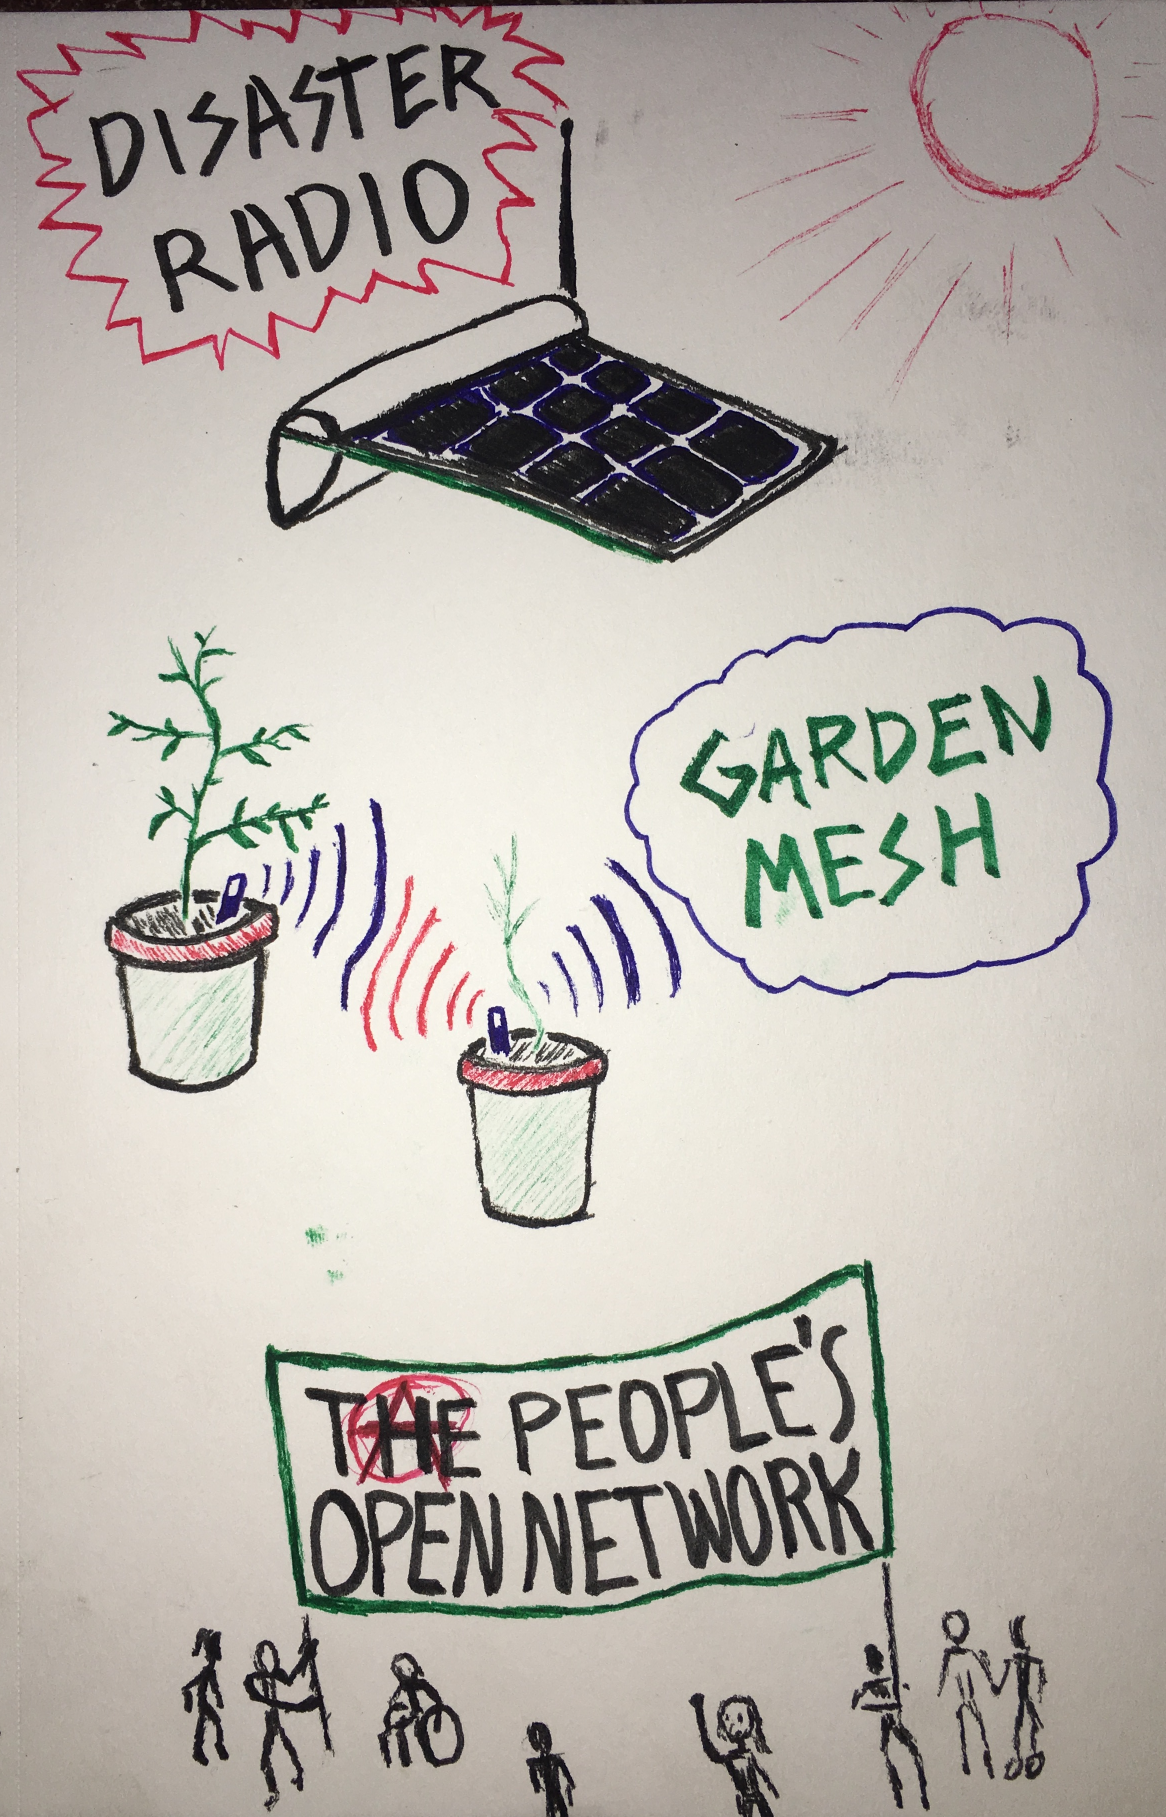 DISASTER
RADIO
GARDEN
MESH
THE PEOPLE'S
OPEN NETWORK